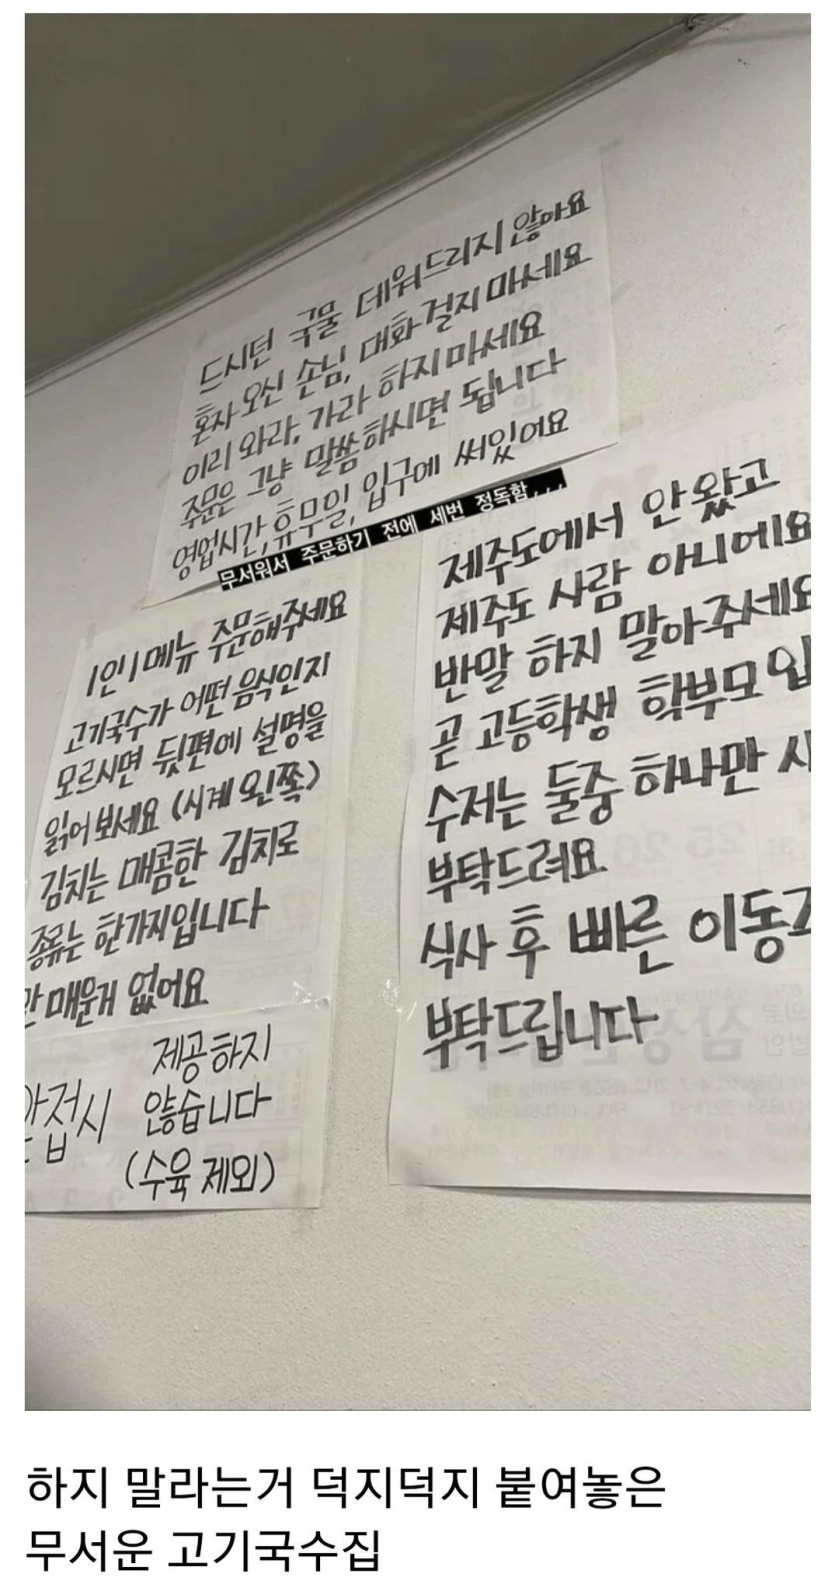 드시던 국물 데워드리지 않아요
혼자 오신 손님, 대화 걸지 마세요
이리 와라, 가라 하지 마세요
주문은 그냥 말씀하시면 됩니다
영업시간, 휴무일, 입구에 써있어요
무서워서 주문하기 전에 세번 정독함...
1인 1메뉴 주문해주세요
고기국수가 어떤 음식인지
모르시면 뒷편에 설명을
읽어보세요 (시계 왼쪽)
김치는 매콤한 김치로
종류는 한가지입니다
안 매운게 없어요
제공하지
앞접시 않습니다
(수육 제외)
제주도에서 안 왔고
제주도 사람 아니에요
반말 하지 말아주세요
곧 고등학생 학부모
수저는 둘중 하나만
부탁드려요
식사 후 빠른 이동
부탁드립니다
하지 말라는거 덕지덕지 붙여놓은
무서운 고기국수집